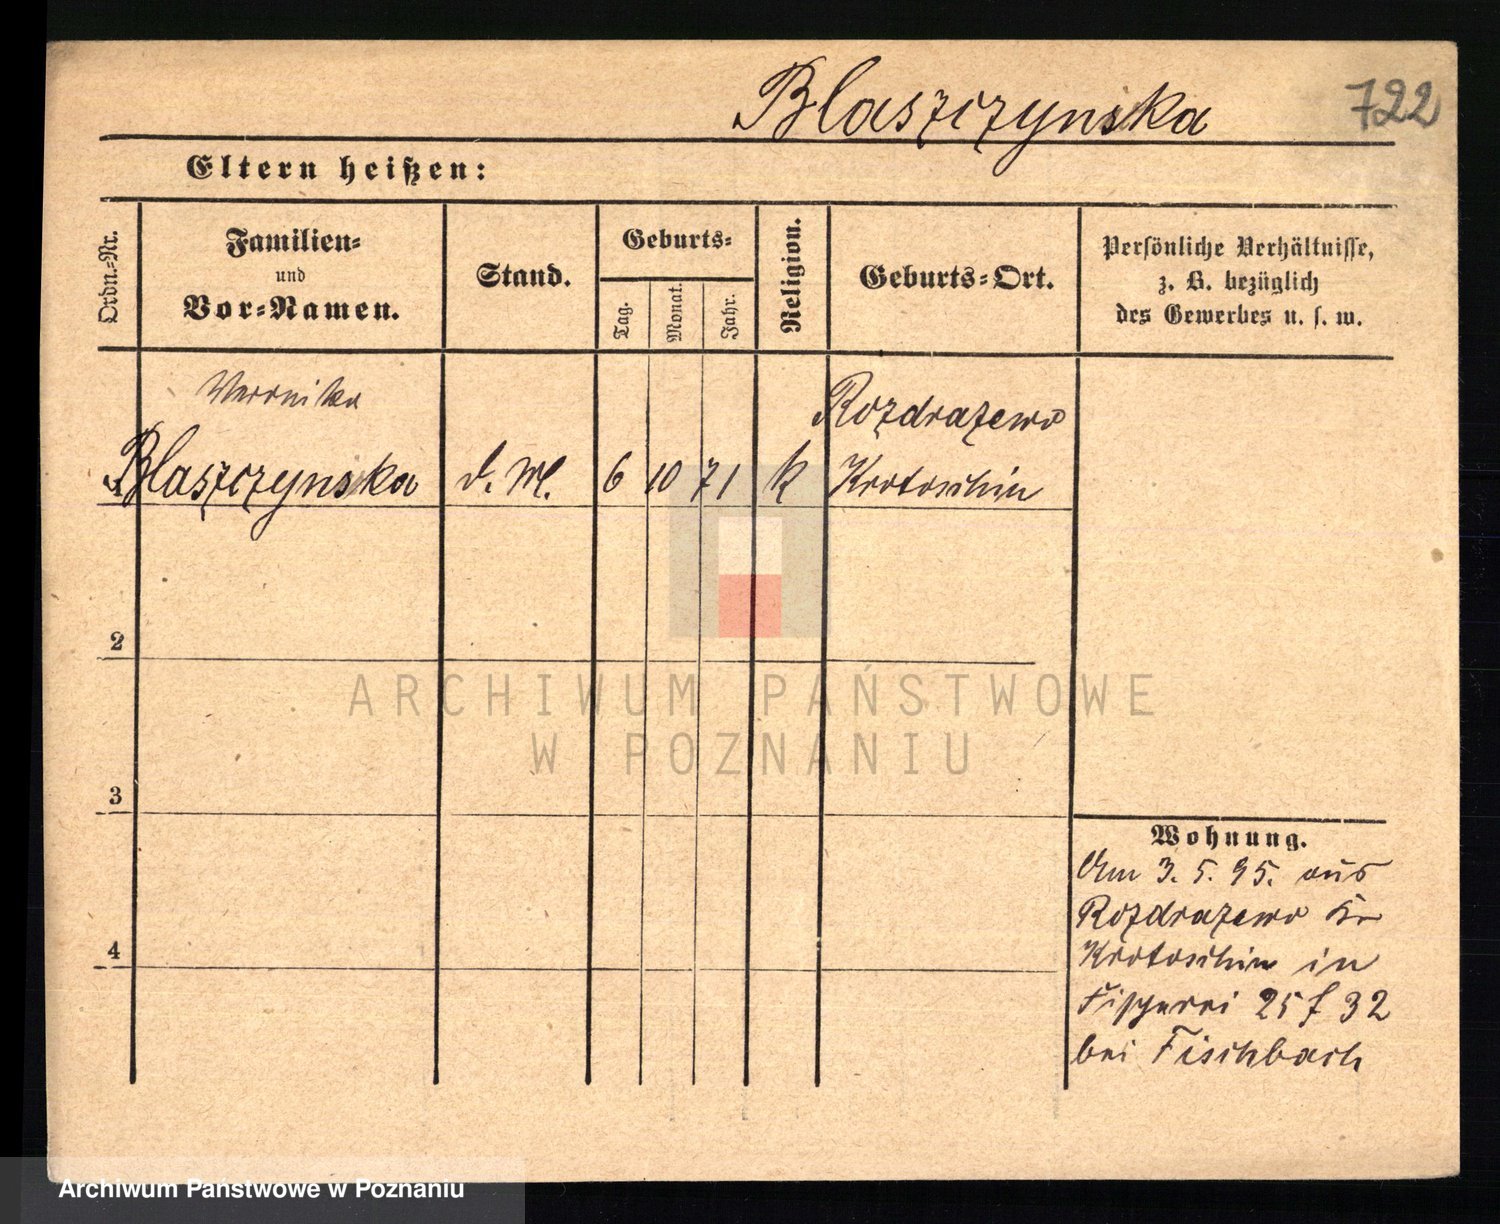 Blaszczynska
722
Eltern heißen:
Ordn.-Nr.
Familien-
und
Vor-Namen.
Stand.
Geburts-
Tag.
Monat.
Jahr.
Religion.
Geburts-Ort.
Persönliche Verhältnisse,
z. B. bezüglich
des Gewerbes u. s. w.
Veronika
Blaszczynska
d. M.
6
10
71
k
Rozdrazewo
Krotoschin
2
3
4
Wohnung.
Am 3. 5. 95. aus
Rozdrazewo Kr
Krotoschin in
Fischerei 25 f 32
bei Fischbach
ARCHIWUM PAŃSTWOWE
W POZNANIU
Archiwum Państwowe w Poznaniu